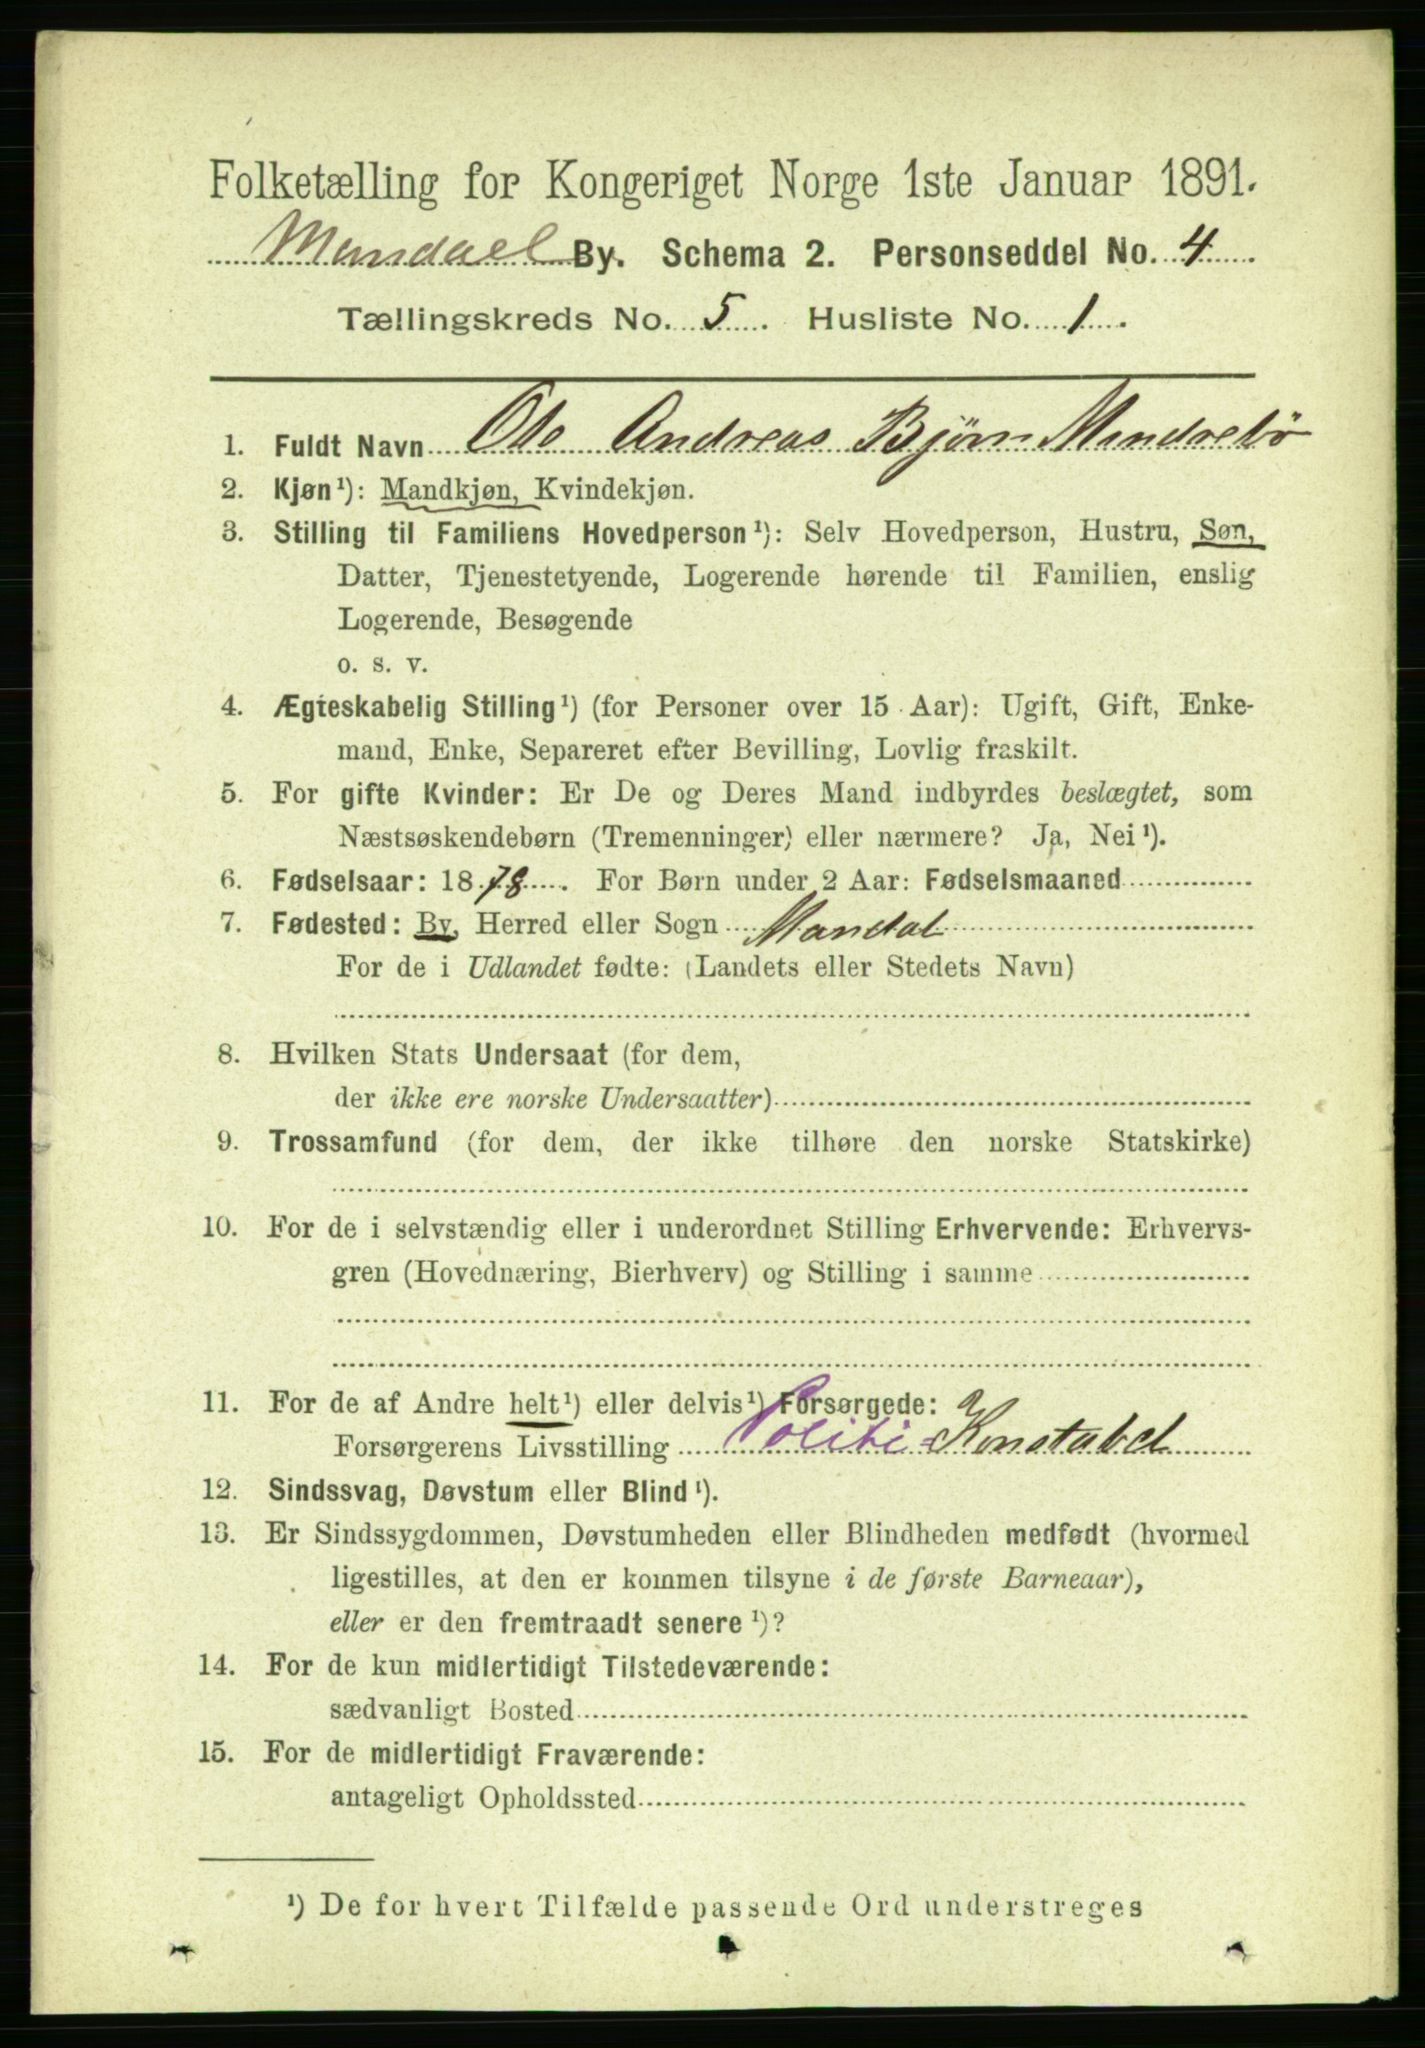 Folketælling for Kongeriget Norge 1ste Januar 1891.
Mandael By. Schema 2. Personseddel No. 4
Tællingskreds No. 5. Husliste No. 1.
1. Fuldt Navn Otto Andreas Bjørn Mindrebö
2. Kjøn¹): Mandkjøn, Kvindekjøn.
3. Stilling til Familiens Hovedperson¹): Selv Hovedperson, Hustru, Søn,
Datter, Tjenestetyende, Logerende hørende til Familien, enslig
Logerende, Besøgende
o. s. v.
4. Ægteskabelig Stilling¹) (for Personer over 15 Aar): Ugift, Gift, Enke-
mand, Enke, Separeret efter Bevilling, Lovlig fraskilt.
5. For gifte Kvinder: Er De og Deres Mand indbyrdes beslægtet, som
Næstsøskendebørn (Tremenninger) eller nærmere? Ja, Nei¹).
6. Fødselsaar: 1878. For Børn under 2 Aar: Fødselsmaaned
7. Fødested: By, Herred eller Sogn Mandal
For de i Udlandet fødte: (Landets eller Stedets Navn)
8. Hvilken Stats Undersaat (for dem,
der ikke ere norske Undersaatter)
9. Trossamfund (for dem, der ikke tilhøre den norske Statskirke)
10. For de i selvstændig eller i underordnet Stilling Erhvervende: Erhvervs-
gren (Hovednæring, Bierhverv) og Stilling i samme
11. For de af Andre helt¹) eller delvis¹) Forsørgede:
Forsørgerens Livsstilling Politi=Konstabel
12. Sindssvag, Døvstum eller Blind¹).
13. Er Sindssygdommen, Døvstumheden eller Blindheden medfødt (hvormed
ligestilles, at den er kommen tilsyne i de første Barneaar),
eller er den fremtraadt senere¹)?
14. For de kun midlertidigt Tilstedeværende:
sædvanligt Bosted
15. For de midlertidigt Fraværende:
antageligt Opholdssted
¹) De for hvert Tilfælde passende Ord understreges